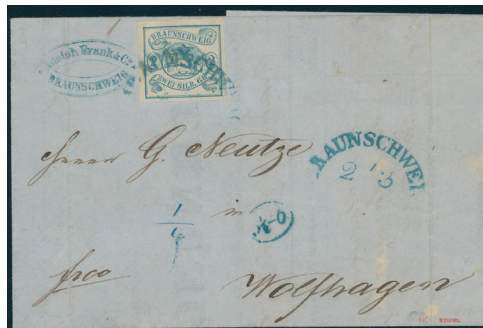 Adolph Frank & Co
BRAUNSCHWEIG
BRAUNSCHWEIG
ZWEI SILB. GR.
Herrn G. Neutze
BRAUNSCHWEI
2 5
in
frco
Wolfhagen